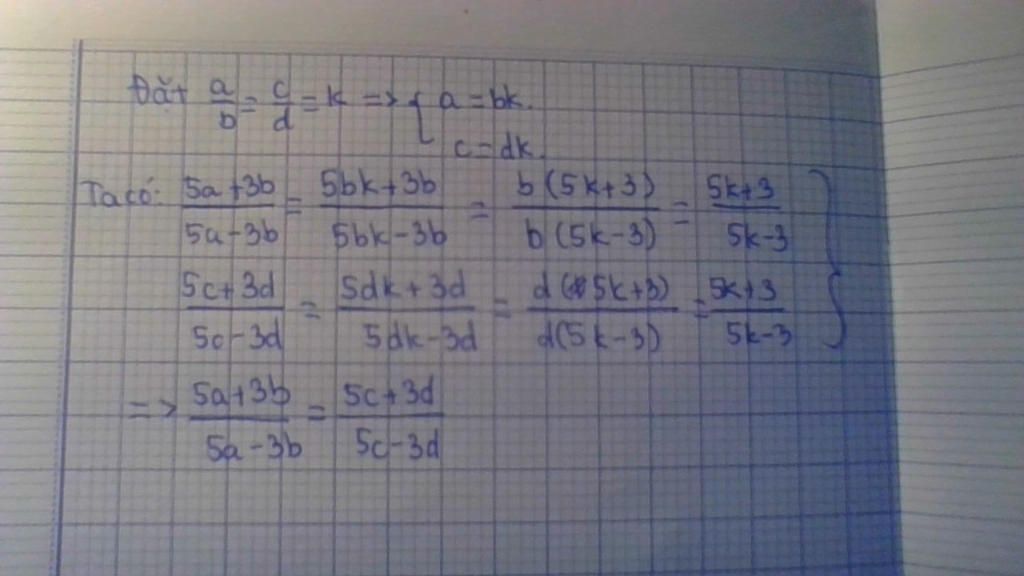 Đặt a/b = c/d = k => { a = bk.
c = dk.
Ta có: (5a+3b)/(5a-3b) = (5bk+3b)/(5bk-3b) = b(5k+3)/b(5k-3) = (5k+3)/(5k-3) }
(5c+3d)/(5c-3d) = (5dk+3d)/(5dk-3d) = d(5k+3)/d(5k-3) = (5k+3)/(5k-3)
=> (5a+3b)/(5a-3b) = (5c+3d)/(5c-3d)